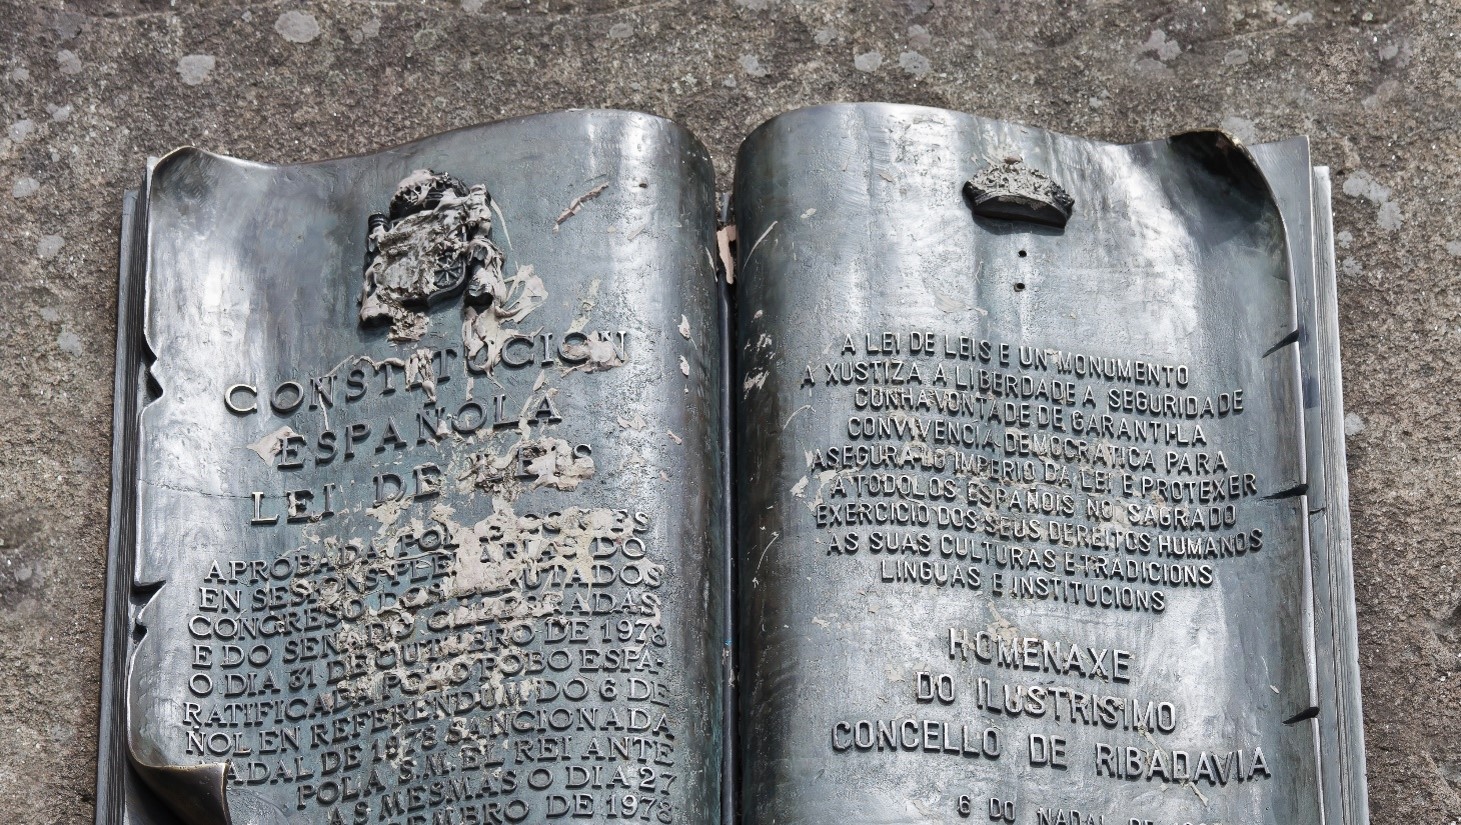 CONSTITUCION
ESPAÑOLA
LEI DE LEIS
APROBADA POLAS CORTES
EN SESIONS PLENARIAS DO
CONGRESO DOS DEPUTADOS
E DO SENADO CELEBRADAS
O DIA 31 DE OUTUBRO DE 1978
RATIFICADA POLO POBO ESPA-
ÑOL EN REFERENDUM DO 6 DE
NADAL DE 1978 SANCIONADA
POLA S.M. EL REI ANTE
AS MESMAS O DIA 27
DE 1978
A LEI DE LEIS E UN MONUMENTO
A XUSTIZA A LIBERDADE A SEGURIDADE
CUNHA VONTADE DE GARANTI-LA
CONVIVENCIA DEMOCRATICA PARA
ASEGURALO IMPERIO DA LEI E PROTEXER
A TODOLOS ESPAÑOIS NO SAGRADO
EXERCICIO DOS SEUS DEREITOS HUMANOS
AS SUAS CULTURAS E TRADICIONS
LINGUAS E INSTITUCIONS
HOMENAXE
DO ILUSTRISIMO
CONCELLO DE RIBADAVIA
6 DO NADAL DE